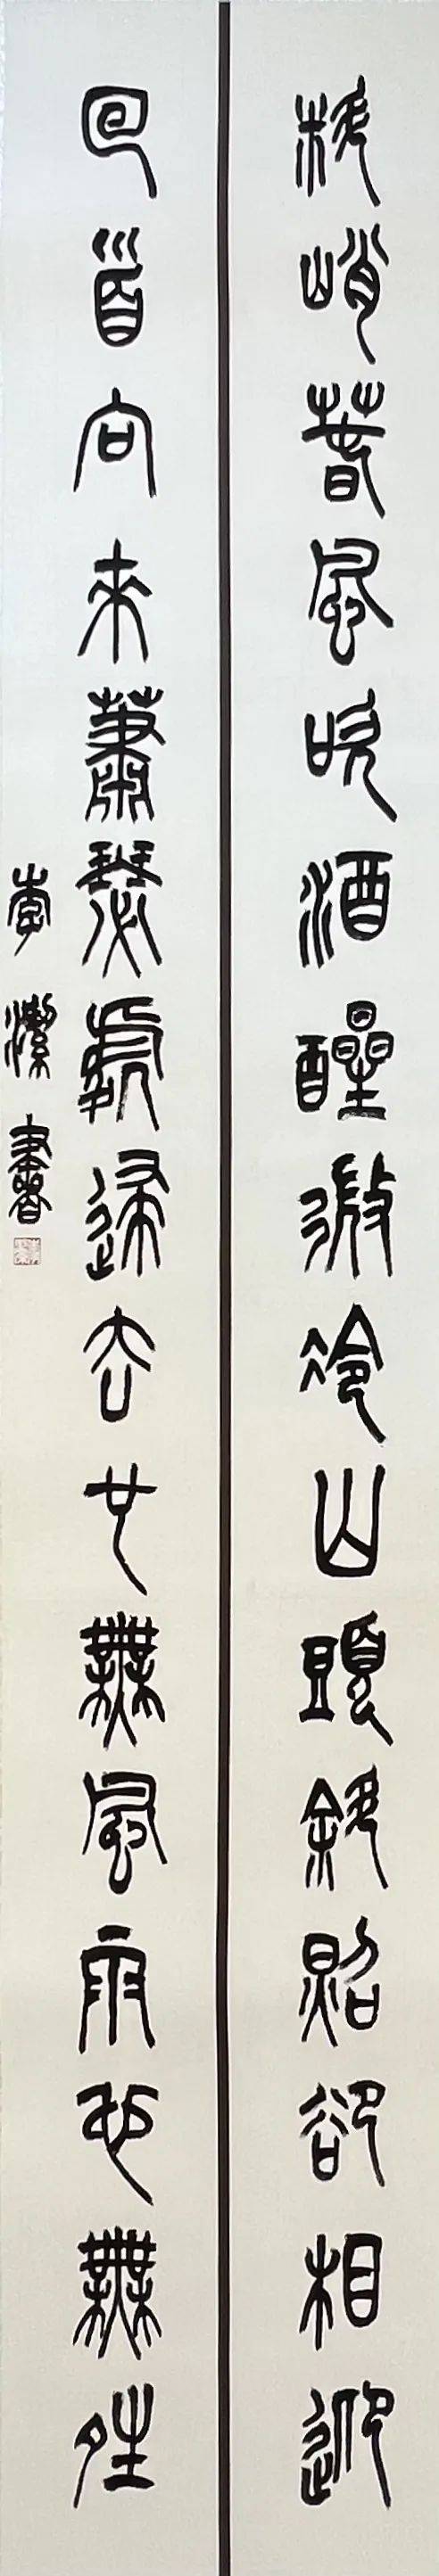 料峭春風吹酒醒微冷山頭斜照卻相迎
回首向來蕭瑟處歸去也無風雨也無晴
李潔書